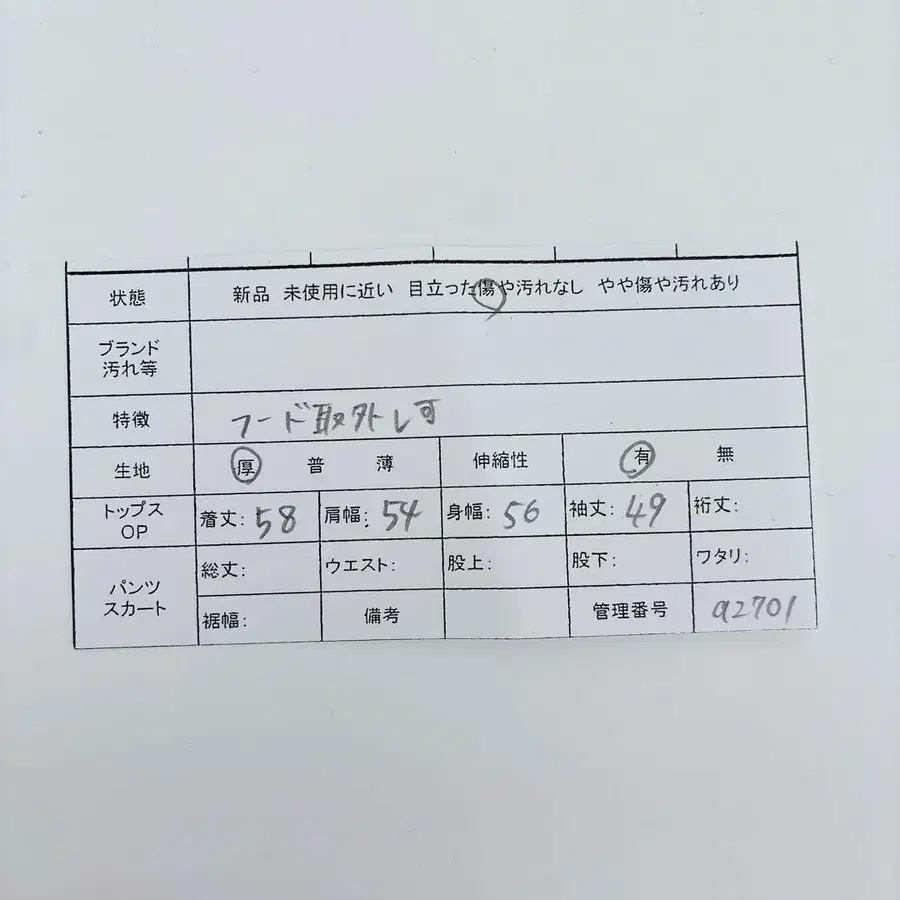 状態 新品 未使用に近い 目立った傷や汚れなし やや傷や汚れあり
ブランド
汚れ等
特徴 フード取外し可
生地 厚 普 薄 伸縮性 有 無
トップス
OP
着丈: 58 肩幅: 54 身幅: 56 袖丈: 49 裄丈:
パンツ
スカート
総丈: ウエスト: 股上: 股下: ワタリ:
裾幅: 備考 管理番号 a2701